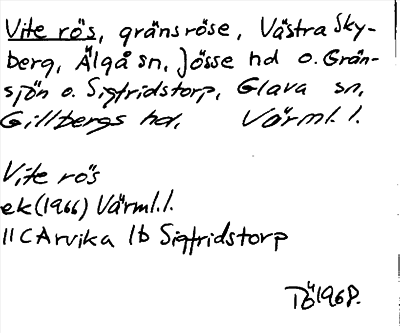 Vite rös, gränsröse, Västra Sky-
berg, Älgå sn, Jösse hd o. Grän-
sjön o. Sigfridstorp, Glava sn,
Gillbergs hd, Värml. l.
Vite rös
ek (1966) Värml. l.
11 C Arvika 1b Sigfridstorp
TÖ 1968.